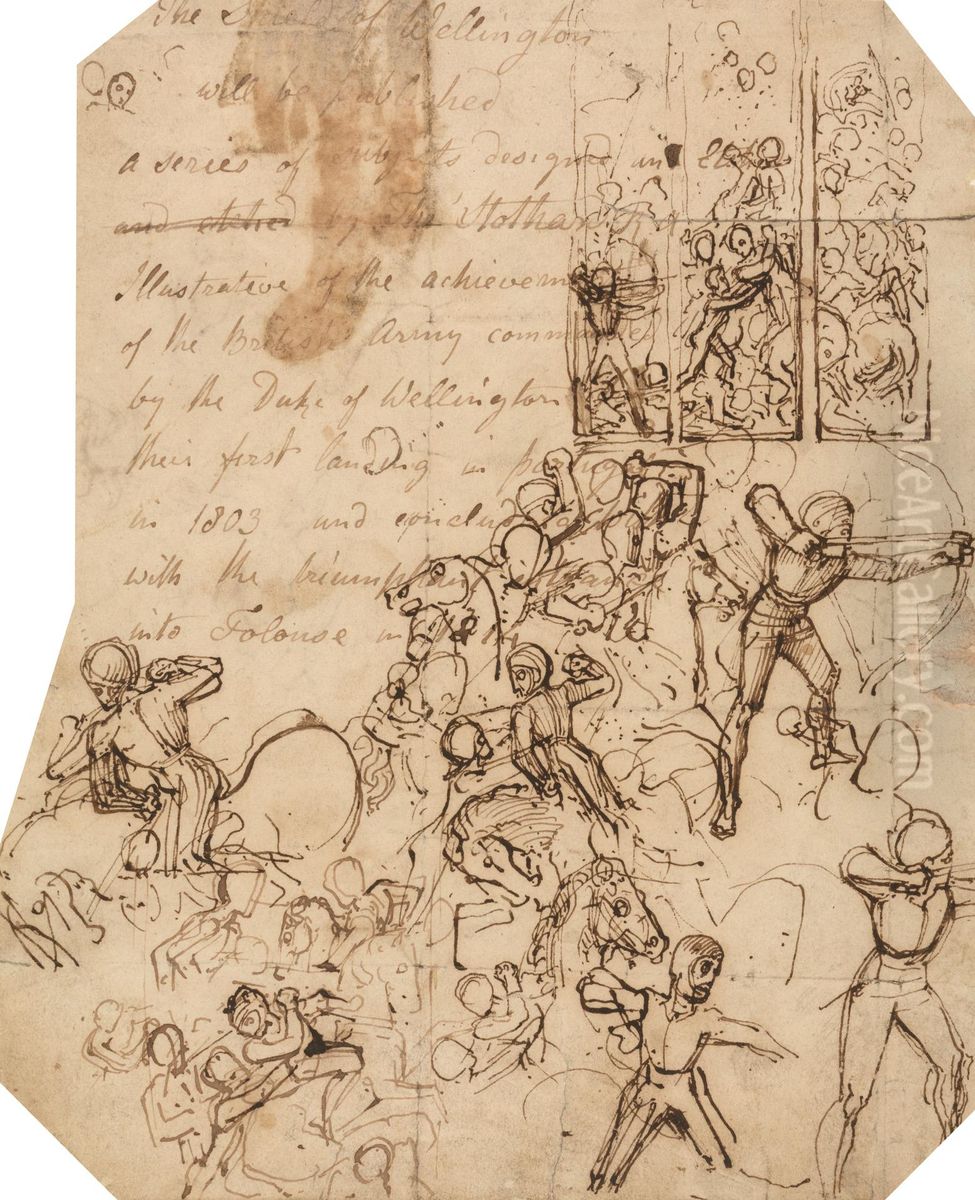 The Shield of Wellington
will be published
a series of subjects designed and
and etched by Thos Stothard
Illustrative of the achievements
of the British Army commanded
by the Duke of Wellington
their first landing in
in 1803 and
with the triumphant
into Tolouse in
LiveArtGallery.com